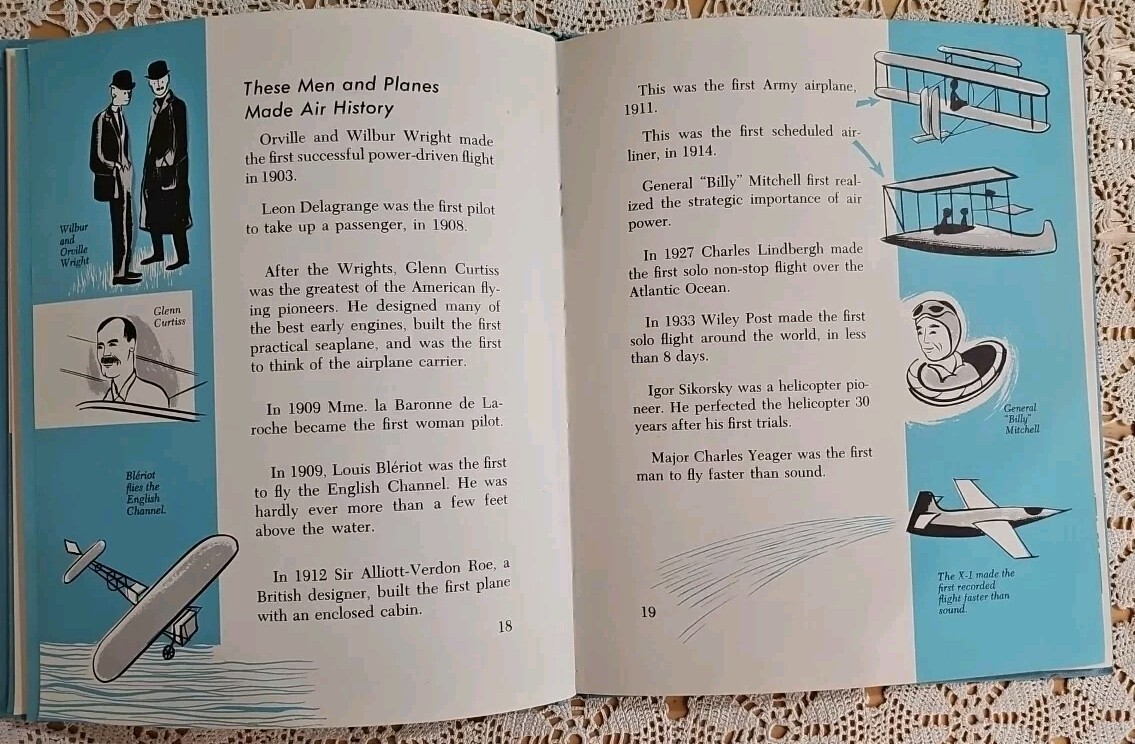 These Men and Planes
Made Air History
Orville and Wilbur Wright made
the first successful power-driven flight
in 1903.
Leon Delagrange was the first pilot
to take up a passenger, in 1908.
After the Wrights, Glenn Curtiss
was the greatest of the American fly-
ing pioneers. He designed many of
the best early engines, built the first
practical seaplane, and was the first
to think of the airplane carrier.
In 1909 Mme. la Baronne de La-
roche became the first woman pilot.
In 1909, Louis Blériot was the first
to fly the English Channel. He was
hardly ever more than a few feet
above the water.
In 1912 Sir Alliott-Verdon Roe, a
British designer, built the first plane
with an enclosed cabin.
18
Wilbur
and
Orville
Wright
Glenn
Curtiss
Blériot
flies the
English
Channel.
This was the first Army airplane,
1911.
This was the first scheduled air-
liner, in 1914.
General "Billy" Mitchell first real-
ized the strategic importance of air
power.
In 1927 Charles Lindbergh made
the first solo non-stop flight over the
Atlantic Ocean.
In 1933 Wiley Post made the first
solo flight around the world, in less
than 8 days.
Igor Sikorsky was a helicopter pio-
neer. He perfected the helicopter 30
years after his first trials.
Major Charles Yeager was the first
man to fly faster than sound.
19
General
"Billy"
Mitchell
The X-1 made the
first recorded
flight faster than
sound.